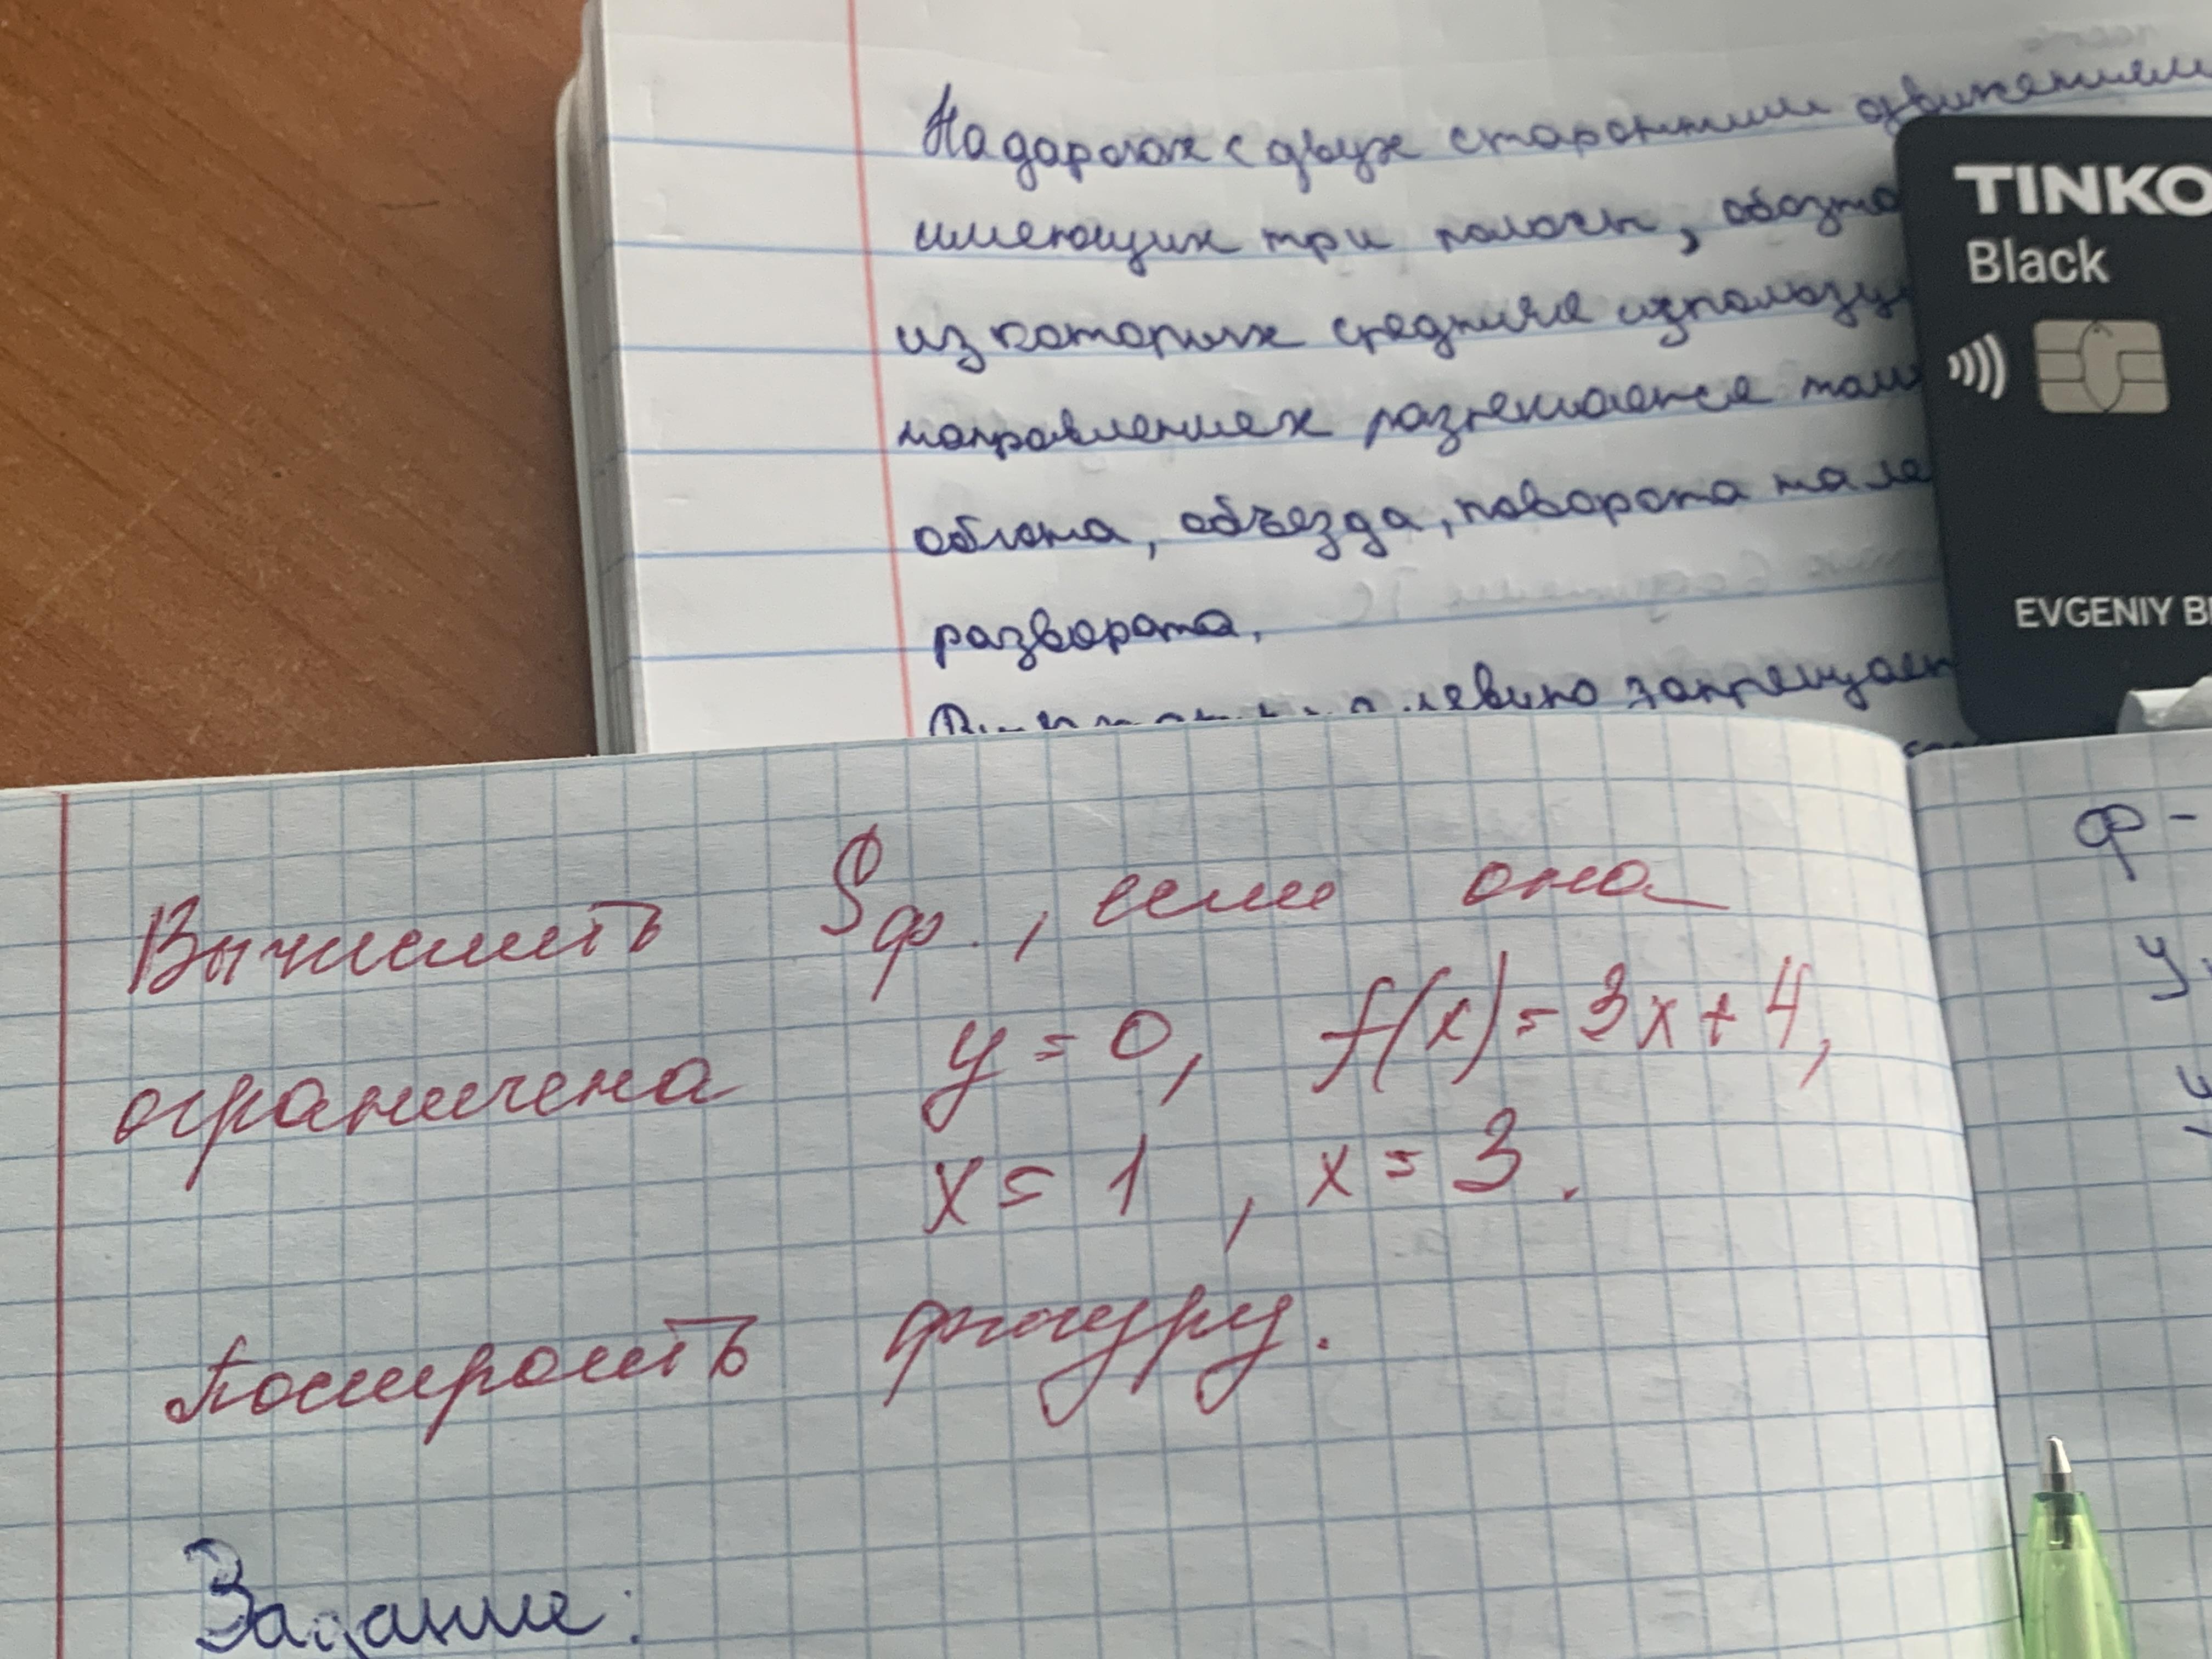 На дорогах с двух сторонним движением
имеющих три полосы, обозна
из которых средняя использу
направлениях разрешается
обгона, объезда, поворота на ле
разворота.
запрещает
TINKO
Black
EVGENIY B
Вычислить Sф., если она
ограничена y = 0, f(x) = 3x + 4,
x = 1, x = 3.
Построить фигуру.
Задание:
φ -
y